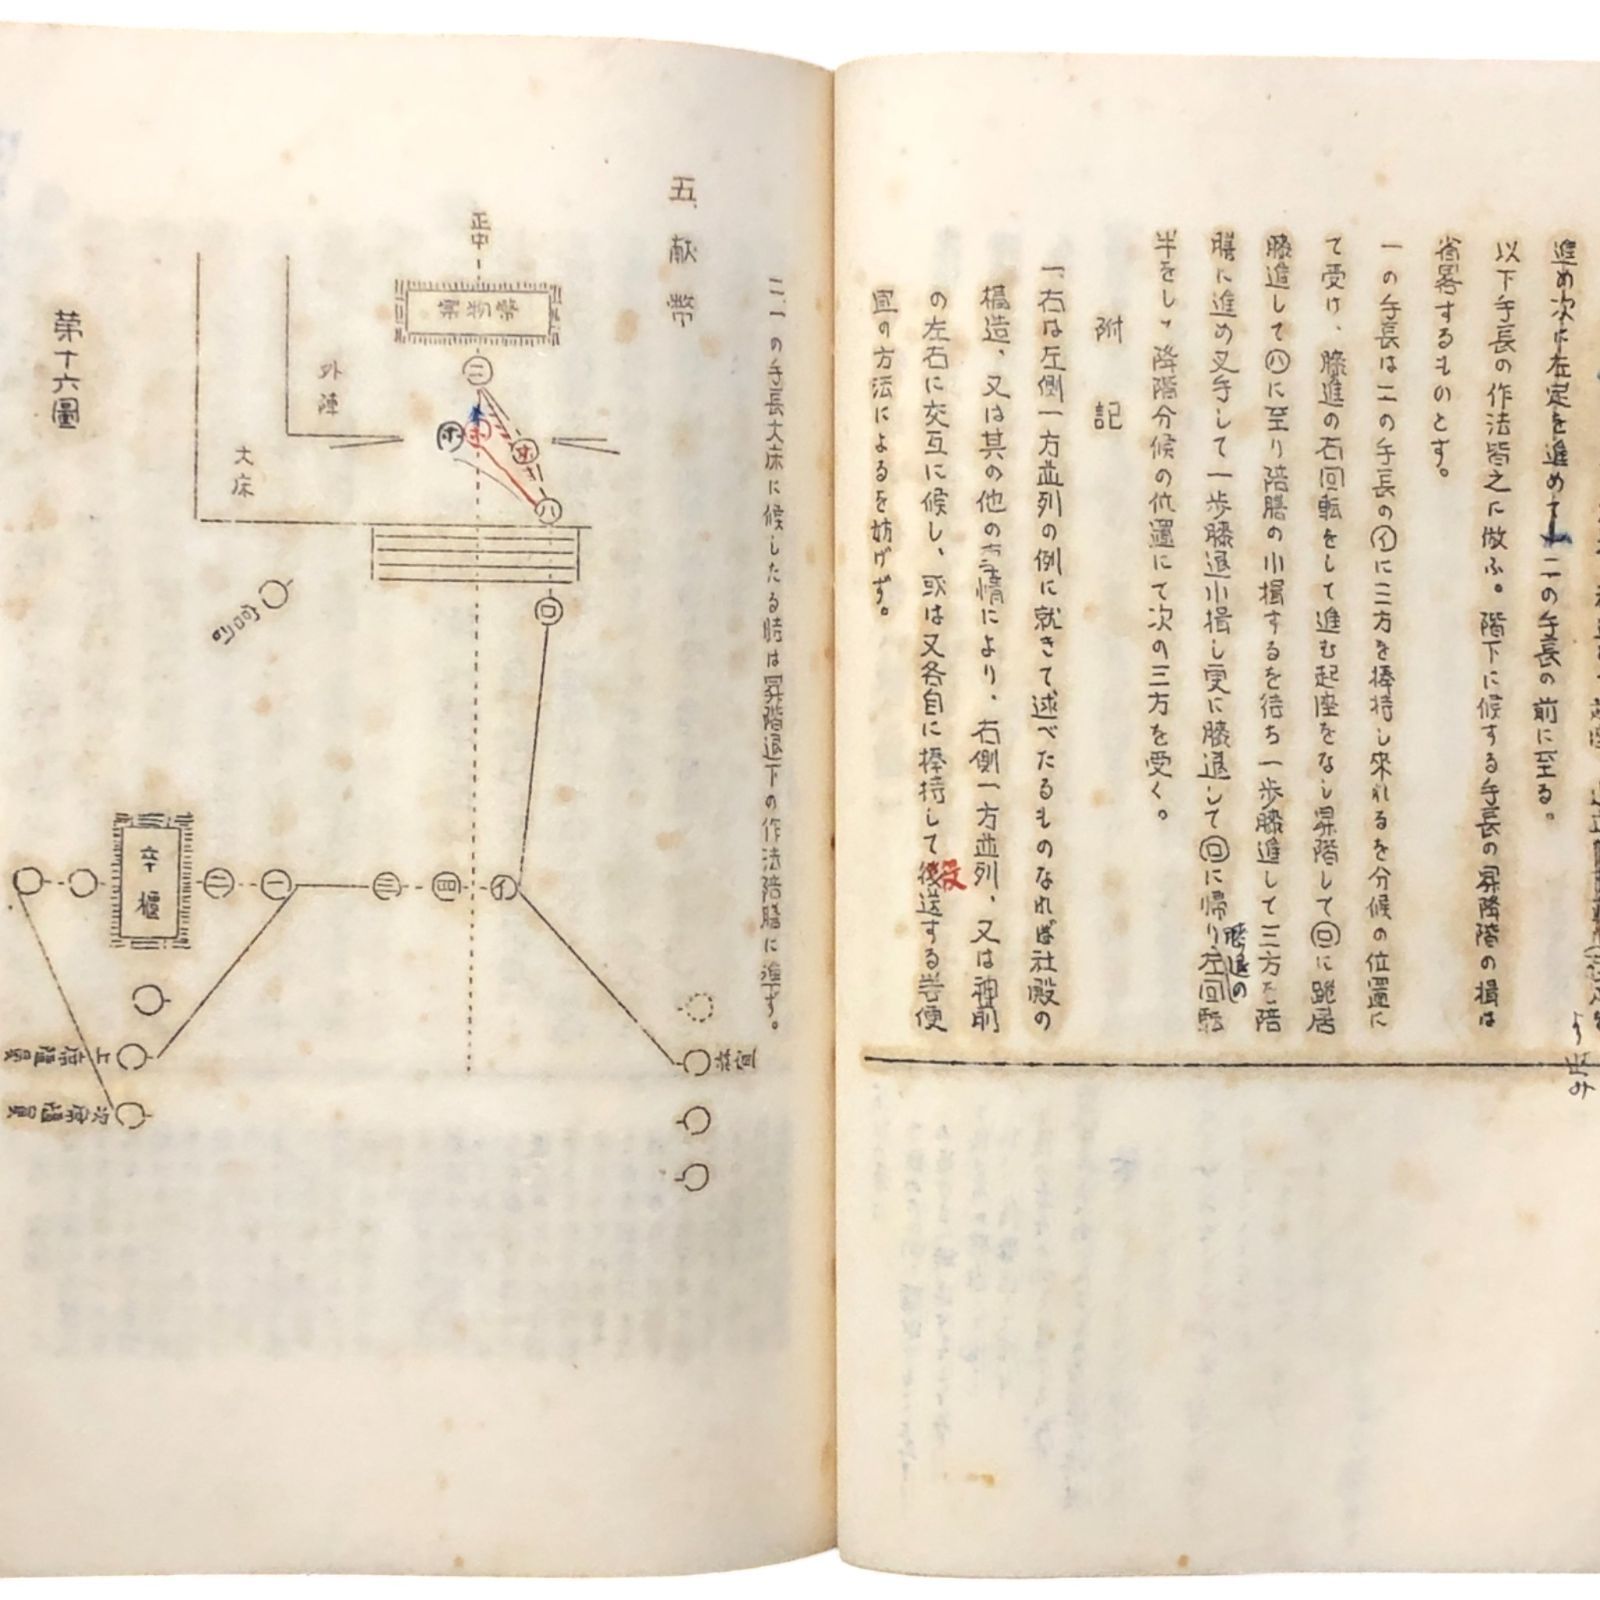 進め次に左足を進めて二の手長の前に至る。
以下手長の作法皆之に倣ふ。階下に候する手長の昇降階の揖は
省畧するものとす。
一の手長は二の手長の㋑に三方を捧持し来れるを分候の位置に
て受け、膝進の右回転をして進む起座をなし昇階して㋺に跪居
膝進して㋩に至り陪膳の小揖するを待ち一歩膝進して三方を陪
膳に進め叉手して一歩膝退小揖し更に膝退して㋺に帰り左回転
膝退の
半をし、降階分候の位置にて次の三方を受く。
附記
一、右は左側一方並列の例に就きて述べたるものなれば社殿の
構造、又は其の他の事情により、右側一方並列、又は神前
の左右に交互に候し、或は又各自に捧持して後送する等便
役
宜の方法によるを妨げず。
二、一の手長大床に候したる時は昇階退下の作法陪膳に準ず。
五献幣
正中
幣物案
㊁
㋭
㋭
㋩
㋺
外陣
大床
宮司
第十六圖
辛櫃
㊁
㊀
㊂
㊃
㋑
祢宜
上席隨員
次席隨員